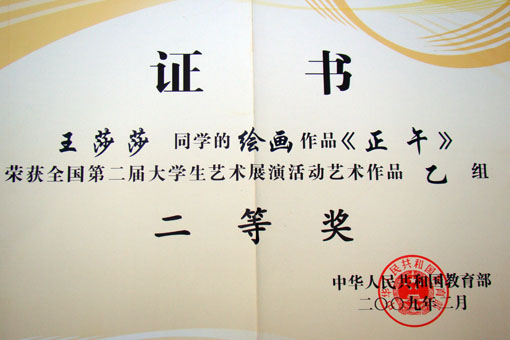 证书
王莎莎 同学的 绘画 作品《正午》
荣获全国第二届大学生艺术展演活动艺术作品 乙 组
二等奖
中华人民共和国教育部
二〇〇九年二月
中华人民共和国教育部